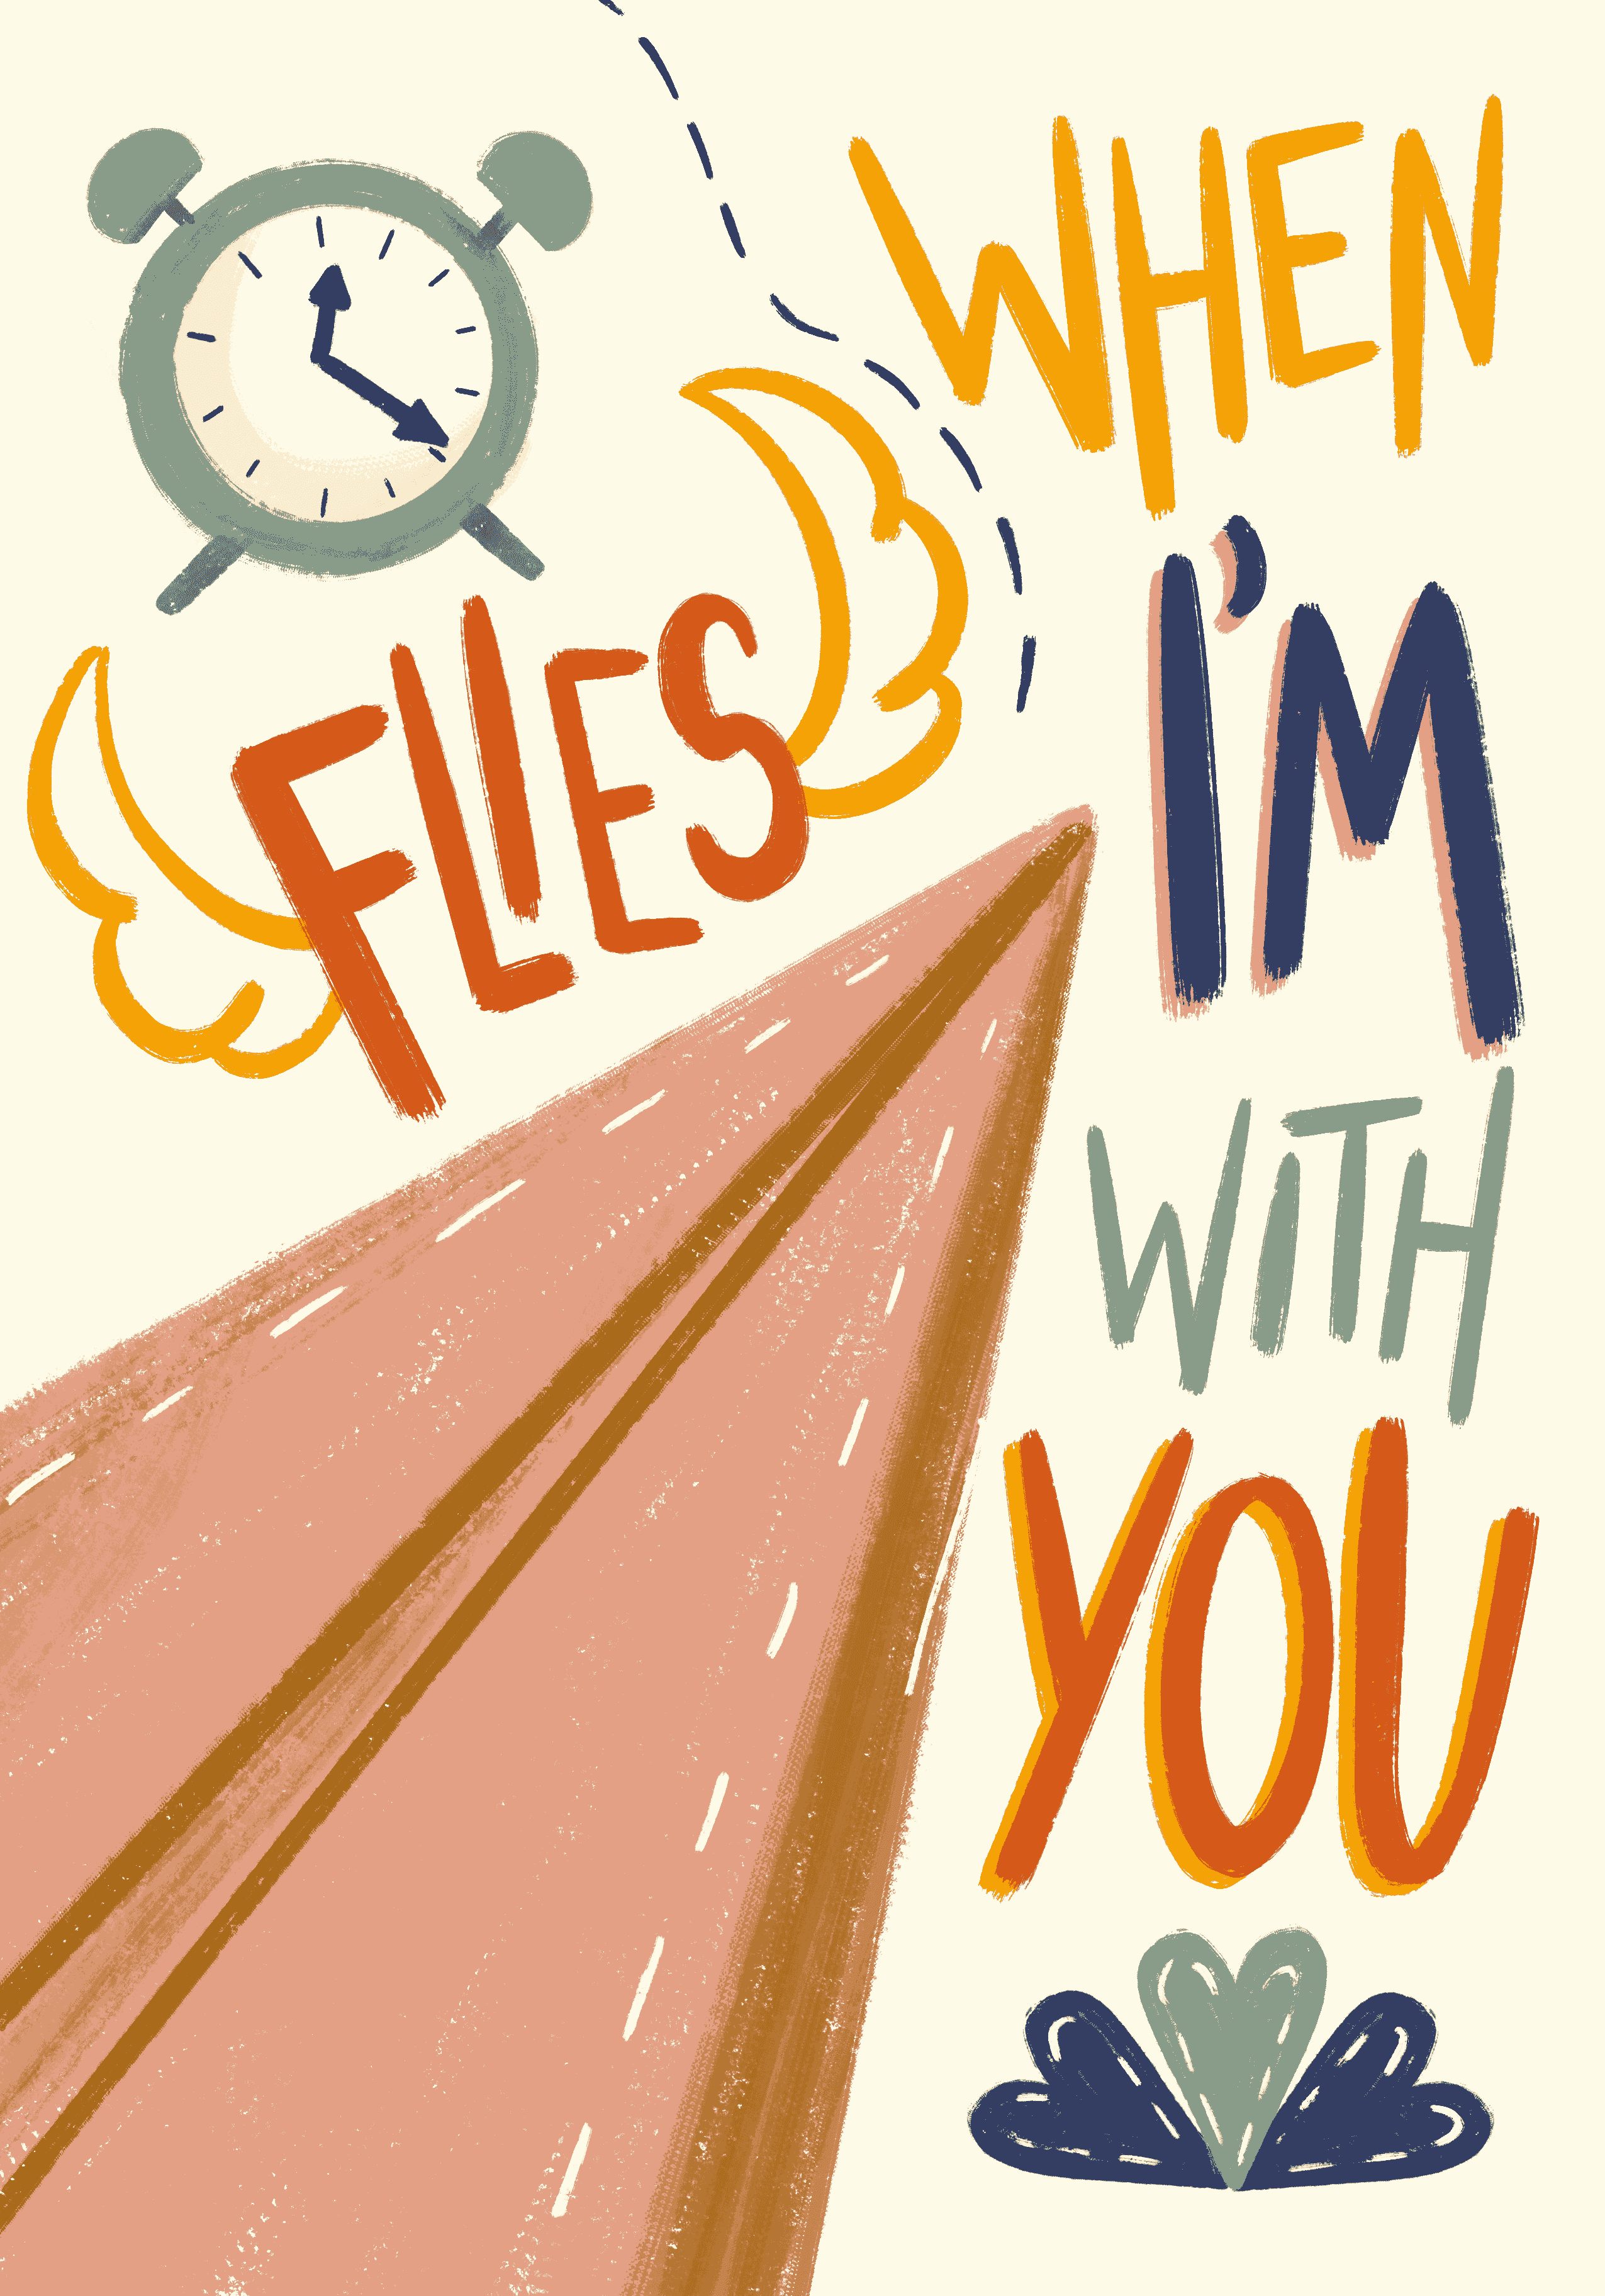 FLIES
WHEN
I'M
WiTH
YOU